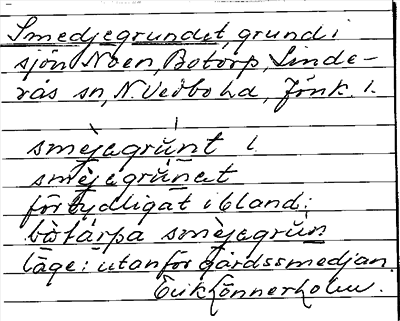 Smedjegrundet, grund i
sjön Noen, Botorp, Linde-
rås sn, N. Vedbo hd, Jönk. l.
smèjegrǔnt l.
smèjegrǔnet
förtydligat ibland:
bòtárpa smèjegrǔn
läge: utanför gårdssmedjan.
Erik Lönnerholm.